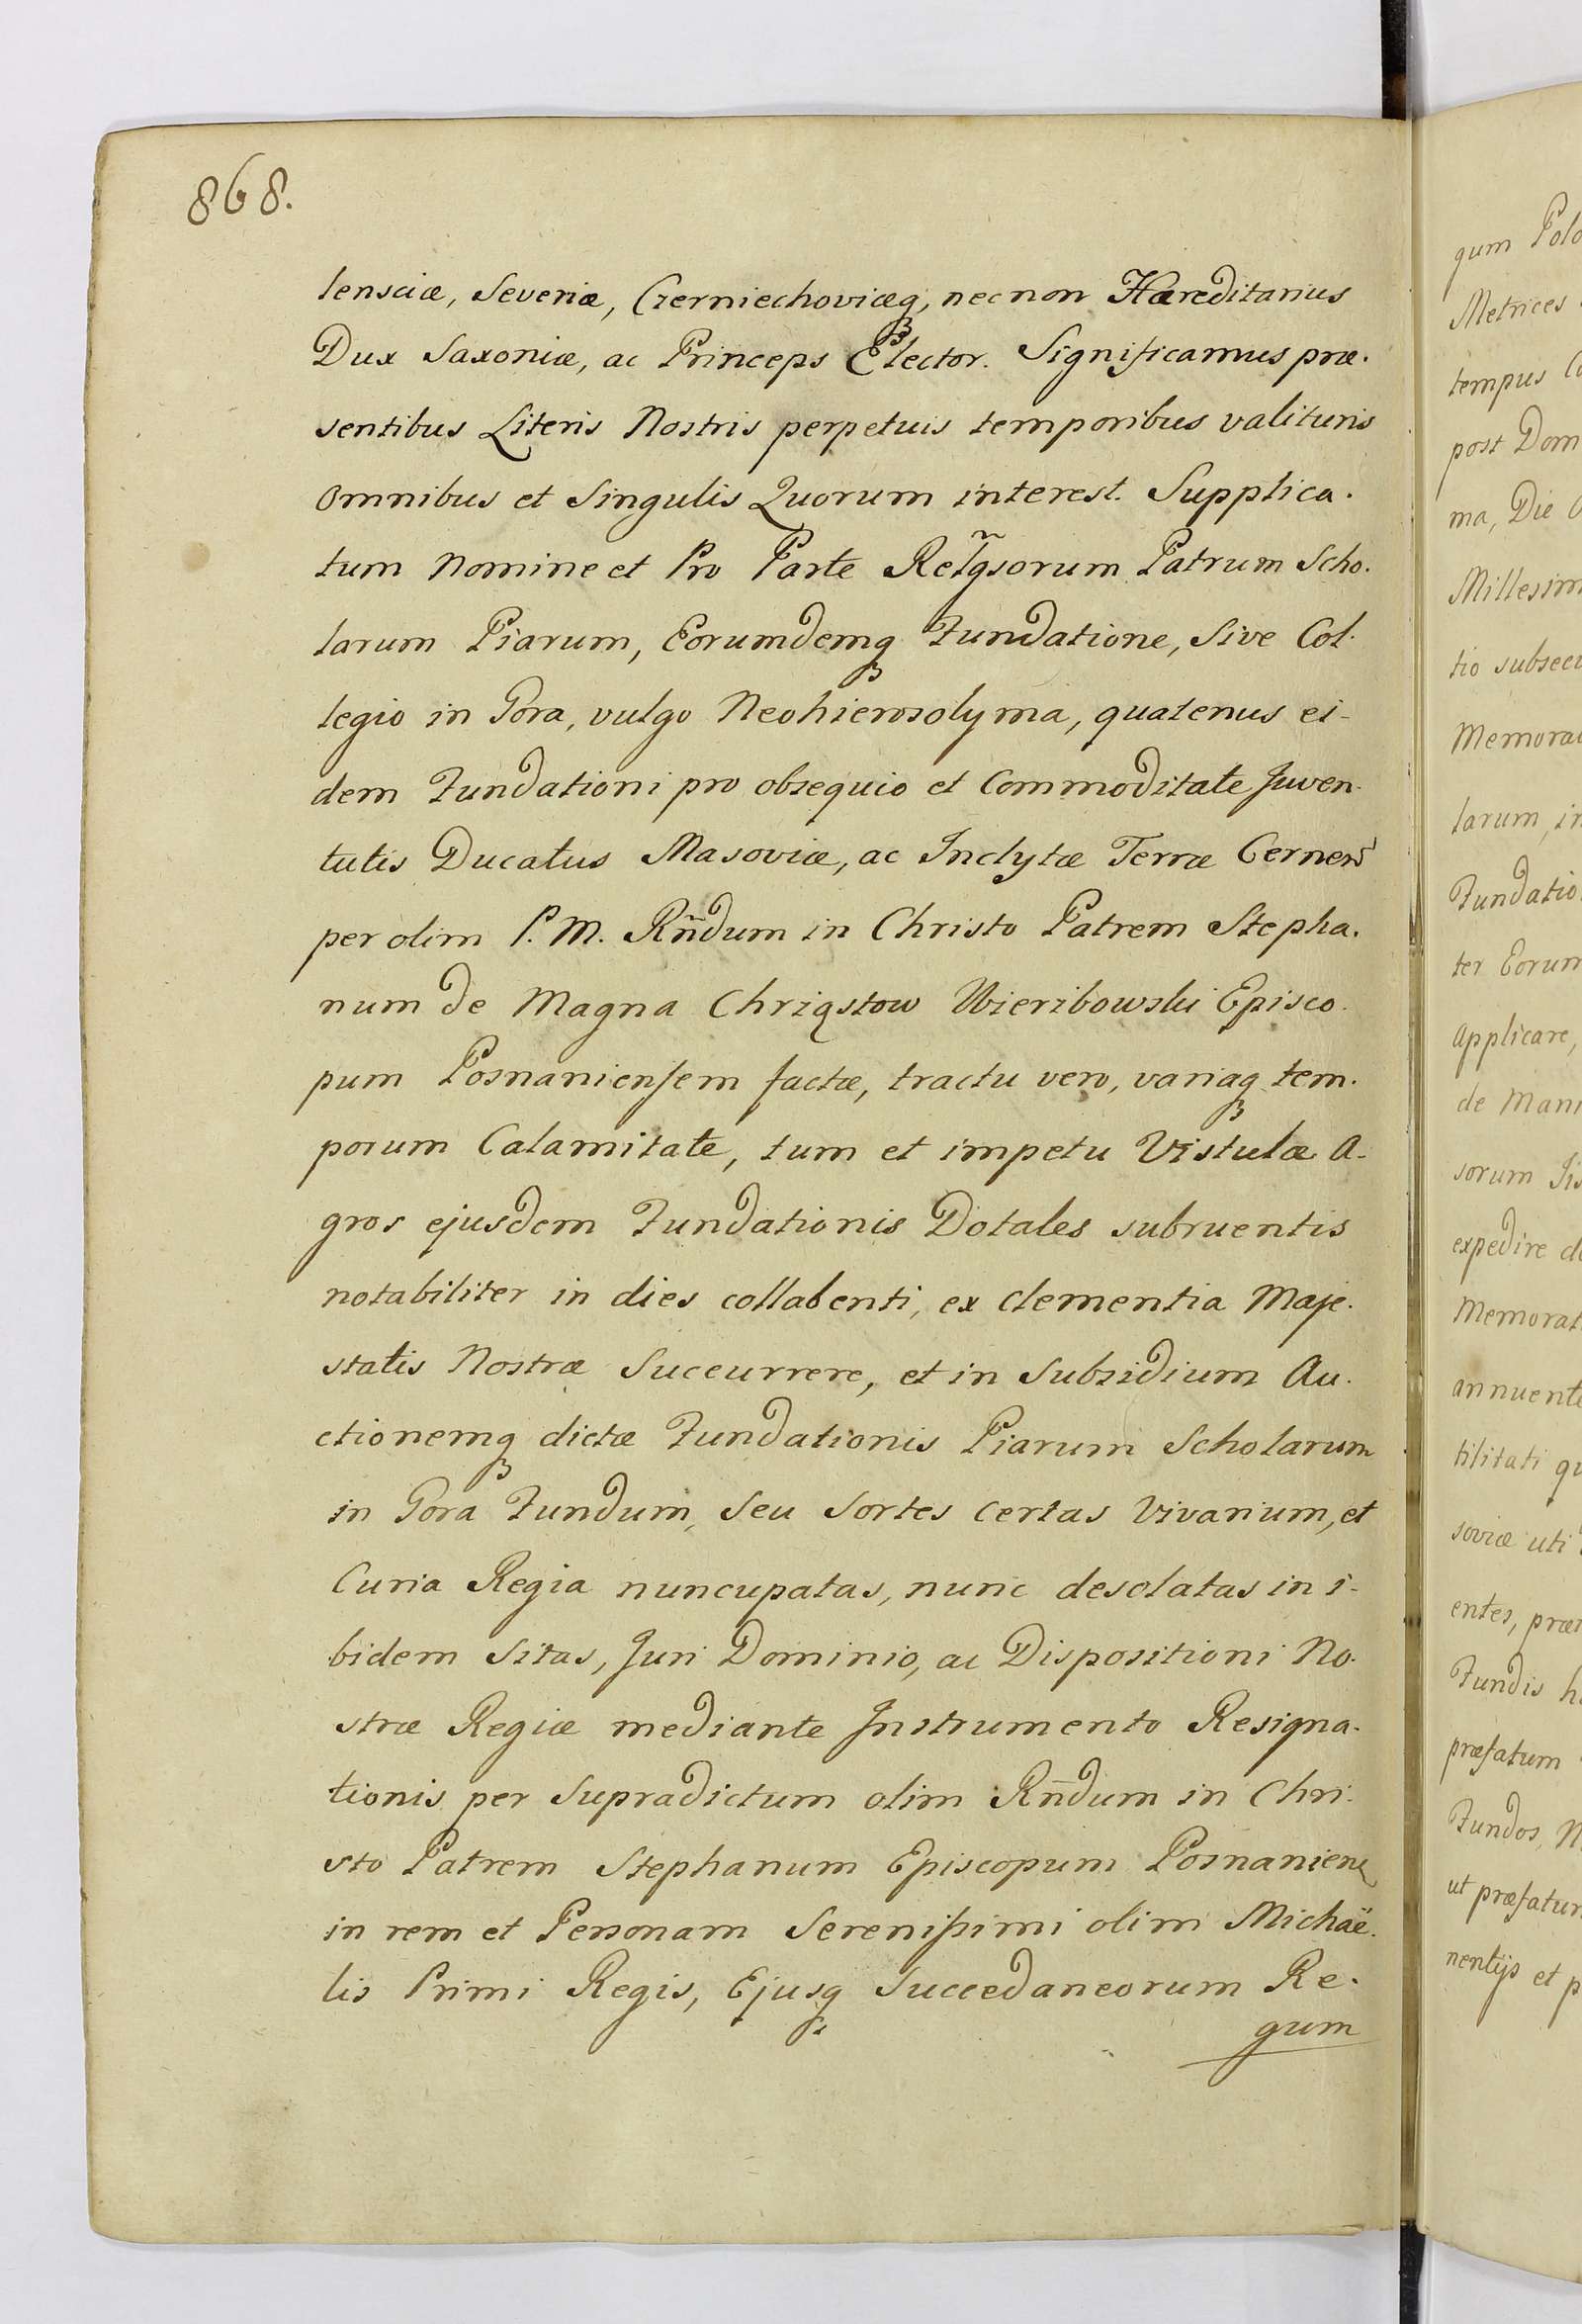 868.
lensciæ, Severiæ, Czerniechoviæq₃, necnon Hæreditarius
Dux Saxoniæ, ac Princeps Elector. Significamus præ.
sentibus Literis Nostris perpetuis temporibus valituris
Omnibus et Singulis Quorum interest. Supplica.
tum Nomine et Pro Parte Rel̃gsorum Patrum Scho.
larum Piarum, Eorumdemq₃ Fundatione, Sive Col.
legio in Gora, vulgo Neohierosolyma, quatenus ei-
dem Fundationi pro obsequio et Commoditate Juven.
tutis Ducatus Masoviæ, ac Inclytæ Terræ Cernen̄
per olim P. M. Rñdum in Christo Patrem Stepha.
num de Magna Chriqstow Wieribowski Episco.
pum Posnaniensem factæ, tractu vero, variaq₃ tem.
porum Calamitate, tum et impetu Vistulæ A-
gros ejusdem Fundationis Dotales subruentis
notabiliter in dies collabenti, ex Clementia Maje.
statis Nostræ Succurrere, et in Subsidium Au.
ctionemq₃ dictæ Fundationis Piarum Scholarum
in Gora Fundum, Seu Sortes Certas Vivarium, et
Curia Regia nuncupatas, nunc desolatas in i-
bidem Sitas, Juri Dominio, ac Dispositioni No.
stræ Regiæ mediante Instrumento Resigna.
tionis per Supradictum olim Rñdum in Chri.
sto Patrem Stephanum Episcopum Posnanien
in rem et Personam Serenissimi olim Michaë.
lis Primi Regis, Ejusq₃ Succedaneorum Re.
gum
gum Polo
Metrices
tempus
post Dom
ma, Die
Millesim
tio subsecu
Memorat
larum, in
Fundatio
ter Eorum
Applicare,
de Man
sorum
expedire
Memorat
annuente
tilitati
soviæ uti
entes, præ
Fundis
præfatum
Fundos,
ut præfatum
nentijs et p